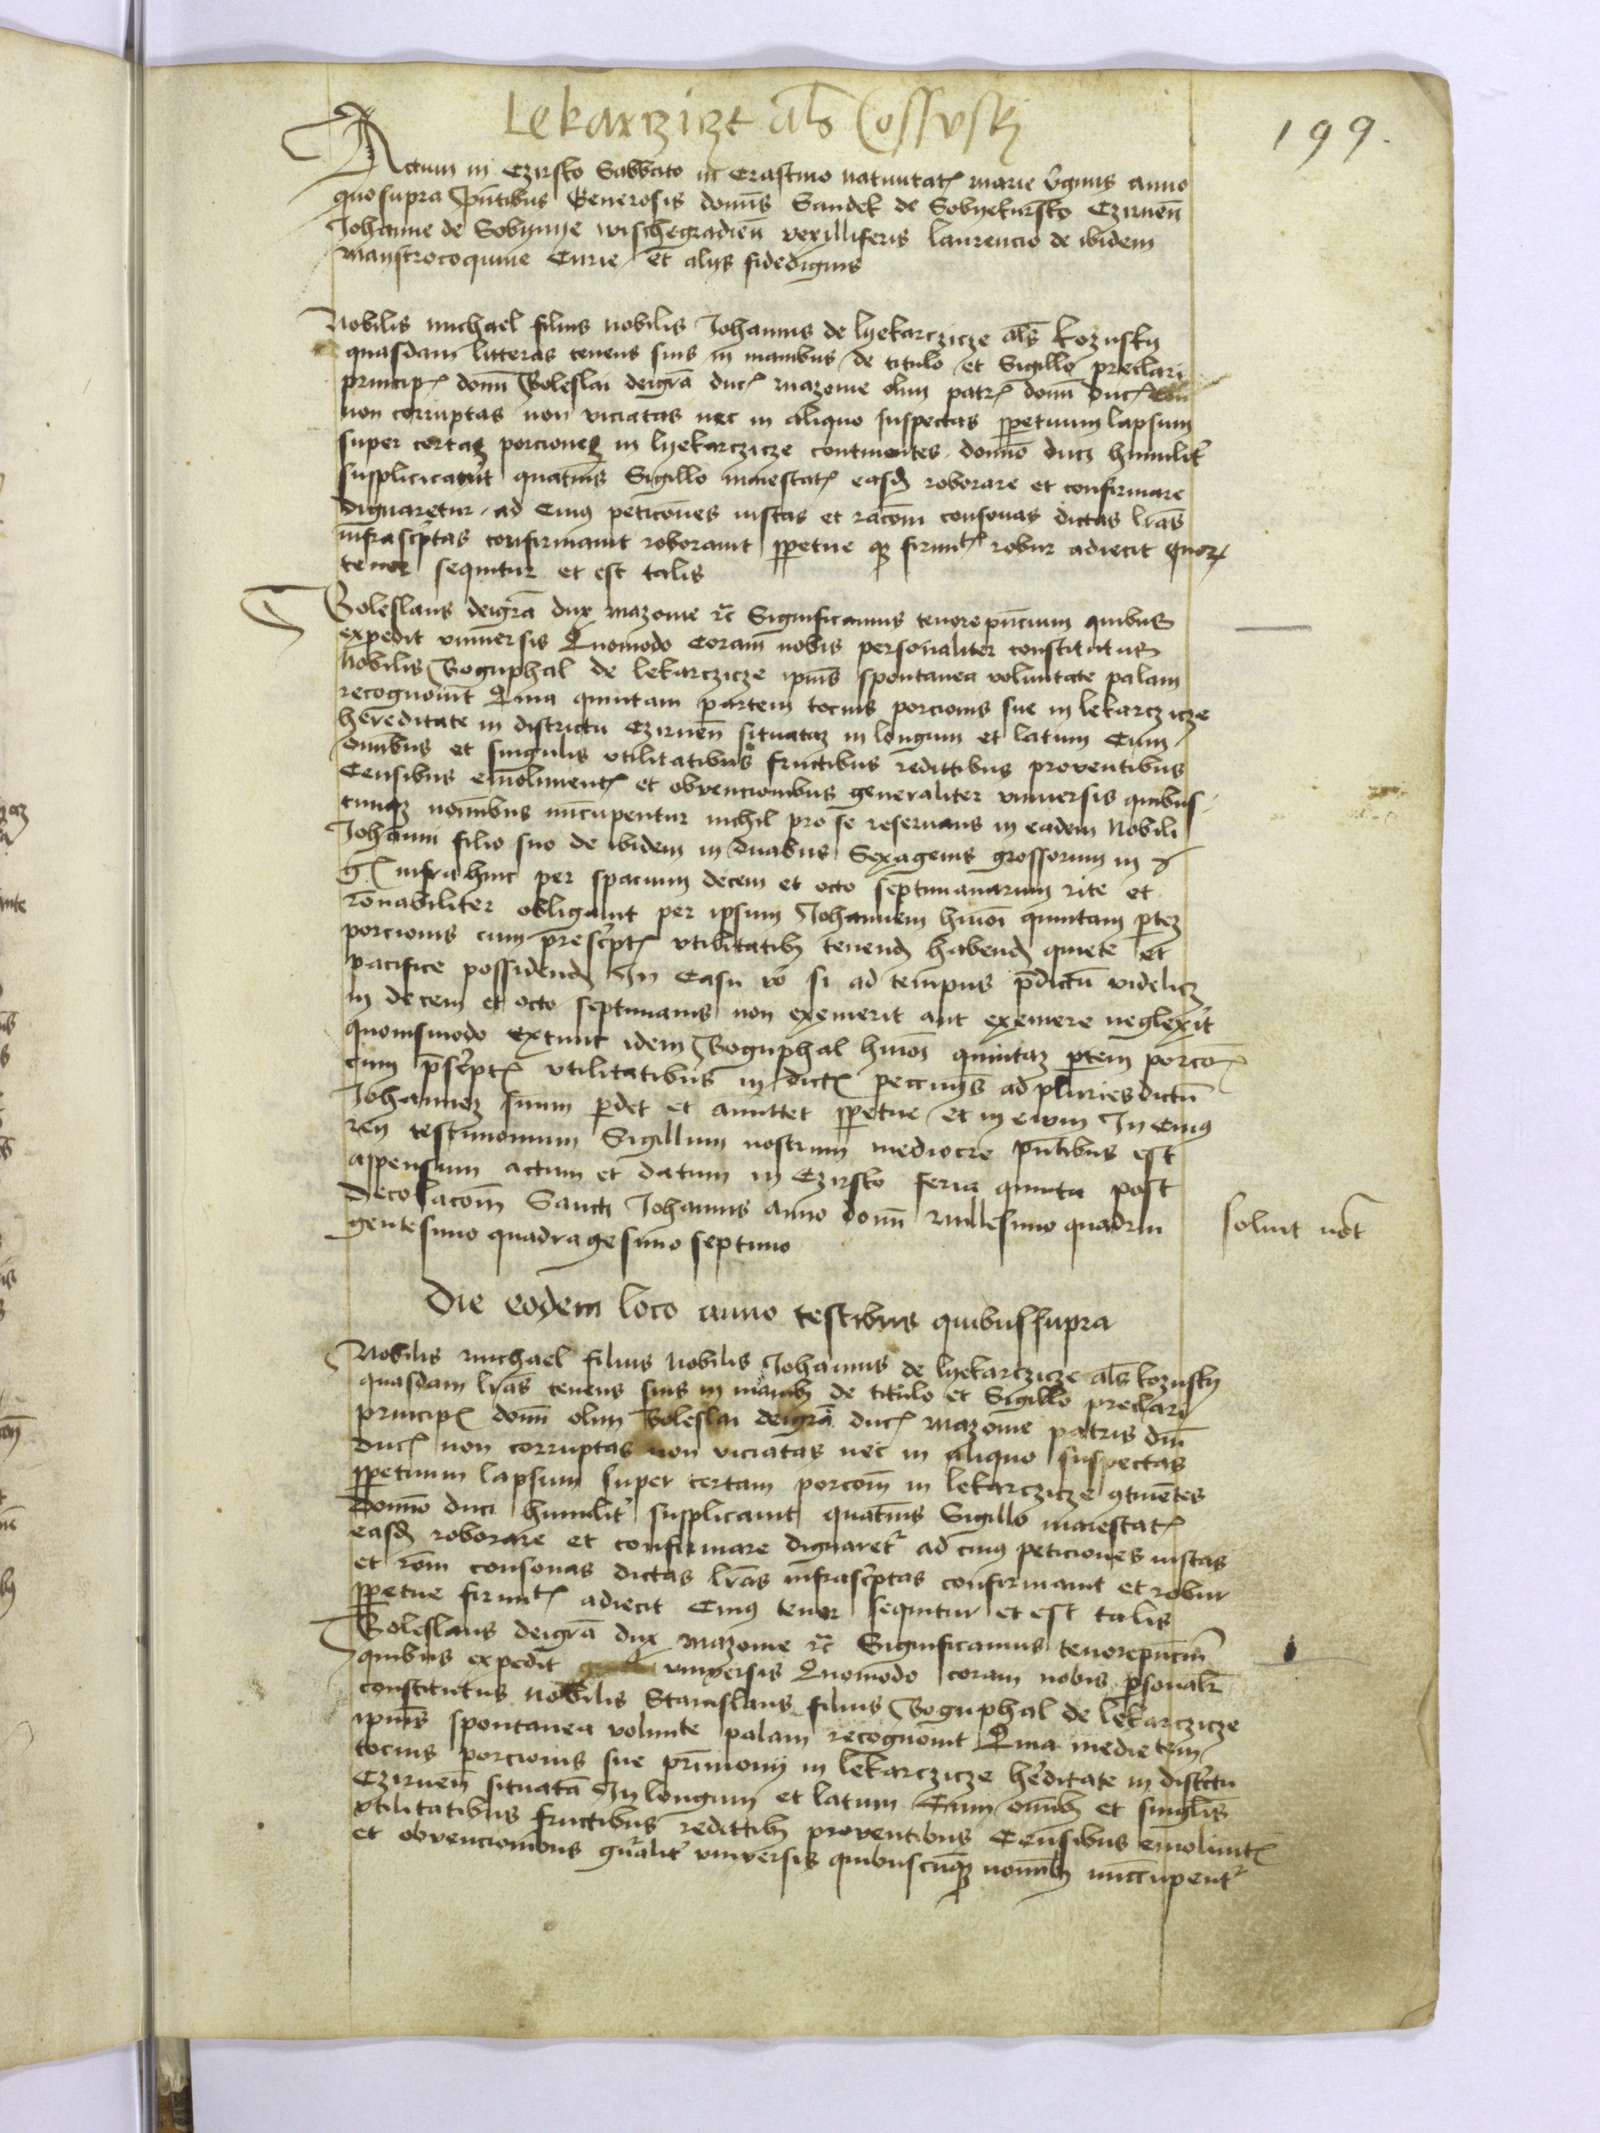 Lekarzicze als Cossusky
199.
Actum in Czirsko Sabbato in Crastino natiuitat marie virginis anno
quo supra pntibus Generosis domis Sandek de Sobyekursko Czirnen
Johanne de Sobynye wischegradien vexilliferis laurencio de ibidem
mgrocoquine Curie et alys fidedignis
Nobilis michael filius nobilis Johannis de lyekarczicze als kozusky
quasdam litteras tenens suis in manibus de titulo et Sigillo preclari
princip domi Boleslai deigra duc mazouie olim patr domi duc
non corruptas non viciatas nec in aliquo suspectas ppetuum lapsum
super certas porciones in lyekarczicze continentes domino duci humilit
supplicauit quatinus Sigillo maiestat easd roborare et confirmare
dignaretur ad Cuius peticones iustas et racom consonas dictas lras
infrascriptas confirmauit roborauit ppetue qz firmit robur adiecit quor
tenor sequitur et est talis
Boleslaus deigra dux mazouie rc Significamus tenore pncium quibus
expedit vniuersis Quomodo Coram nobis personaliter constitutus
Nobilis Boguphal de lekarczicze ipius spontanea voluntate palam
recognouit Quia quintam partem tocius porcionis sue in lekarczicze
hereditate in districtu Czirnen situataz in longum et latum Cum
omnibus et singulis vtilitatibus fructibus redittibus prouentibus
Censibus emoliment et obuencionibus generaliter vniuersis quibus
cunqz nominibus nuncupentur nichil pro se reseruans in eadem Nobili
Johanni filio suo de ibidem in duabus Sexagenis grossorum in
g infra hinc per spacium decem et octo septimanarum rite et
ronabiliter obligauit per ipsum Johannem huiusmoi quintam ptez
porcionis cum prescript vtilitatib tenend habend quiete et
pacifice possidend In Casu vo si ad tempus pdictu videlicz
in decem et octo septimanis non exemerit aut exemere neglexit
quouismodo extunc idem Boguphal huiusmoi quintaz ptem porcon
cum pscript vtilitatibus in dict peccunys ad pluries dictu
Johannez suum pdet et amittet ppetue et in ewm In Cuius
rei testimonium Sigillum nostrum mediocre pntibus est
appensum actum et datum in Czirsko feria quinta post
Decolacom Sancti Johannis anno domi millesimo quadrin
gentesimo quadragesimo septimo
soluit not
Die eodem loco anno testibus quibus supra
Nobilis michael filius Nobilis Johannis de lyekarczicze als kozusky
quasdam lras tenens suis in manib de titulo et Sigillo preclari
princip domi olim Boleslai deigra duc mazouie patris dni
duc non corruptas non viciatas nec in aliquo suspectas
ppetuum lapsum super certam porcom in lekarczicze 9tinetes
domino duci humilit supplicauit quatinus Sigillo maiestat
easd roborare et confirmare dignaret ad cuius peticiones iustas
et rom consonas dictas lras infrascriptas confirmauit et robur
ppetue firmit adiecit Cuius tenor sequitur et est talis
Boleslaus deigra dux mazouie rc Significamus tenore pncium
quibus expedit vniuersis Quomodo coram nobis psonalr
constitutus Nobilis Stanislaus filius Boguphal de lekarczicze
ipius spontanea volunte palam recognouit Quia medietem
tocius porcionis sue primony in lekarczicze heditate in distctu
Czirnen situata In longum et latum Cum omib et singlis
vtilitatibus fructibus redittib prouentibus Censibus emolimt
et obuencionibus gnralit vniuersis quibuscuqz nomib nuccupent